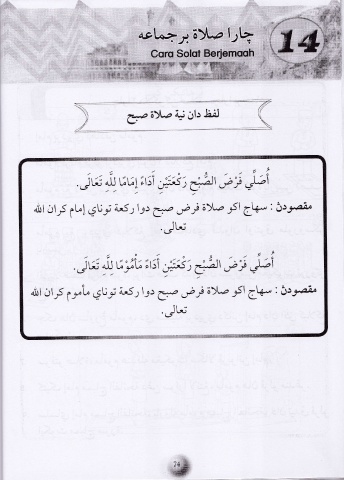 چارا صلاة برجماعه
Cara Solat Berjemaah
14
لفظ دان نية صلاة صبح
أُصَلِّي فَرْضَ الصُّبْحِ رَكْعَتَيْنِ أَدَاءً إِمَامًا لِلَّهِ تَعَالَى.
مقصودڽ : سهاج اكو صلاة فرض صبح دوا ركعة توناي إمام كران الله
تعالى.
أُصَلِّي فَرْضَ الصُّبْحِ رَكْعَتَيْنِ أَدَاءً مَأْمُومًا لِلَّهِ تَعَالَى.
مقصودڽ : سهاج اكو صلاة فرض صبح دوا ركعة توناي مأموم كران الله
تعالى.
74